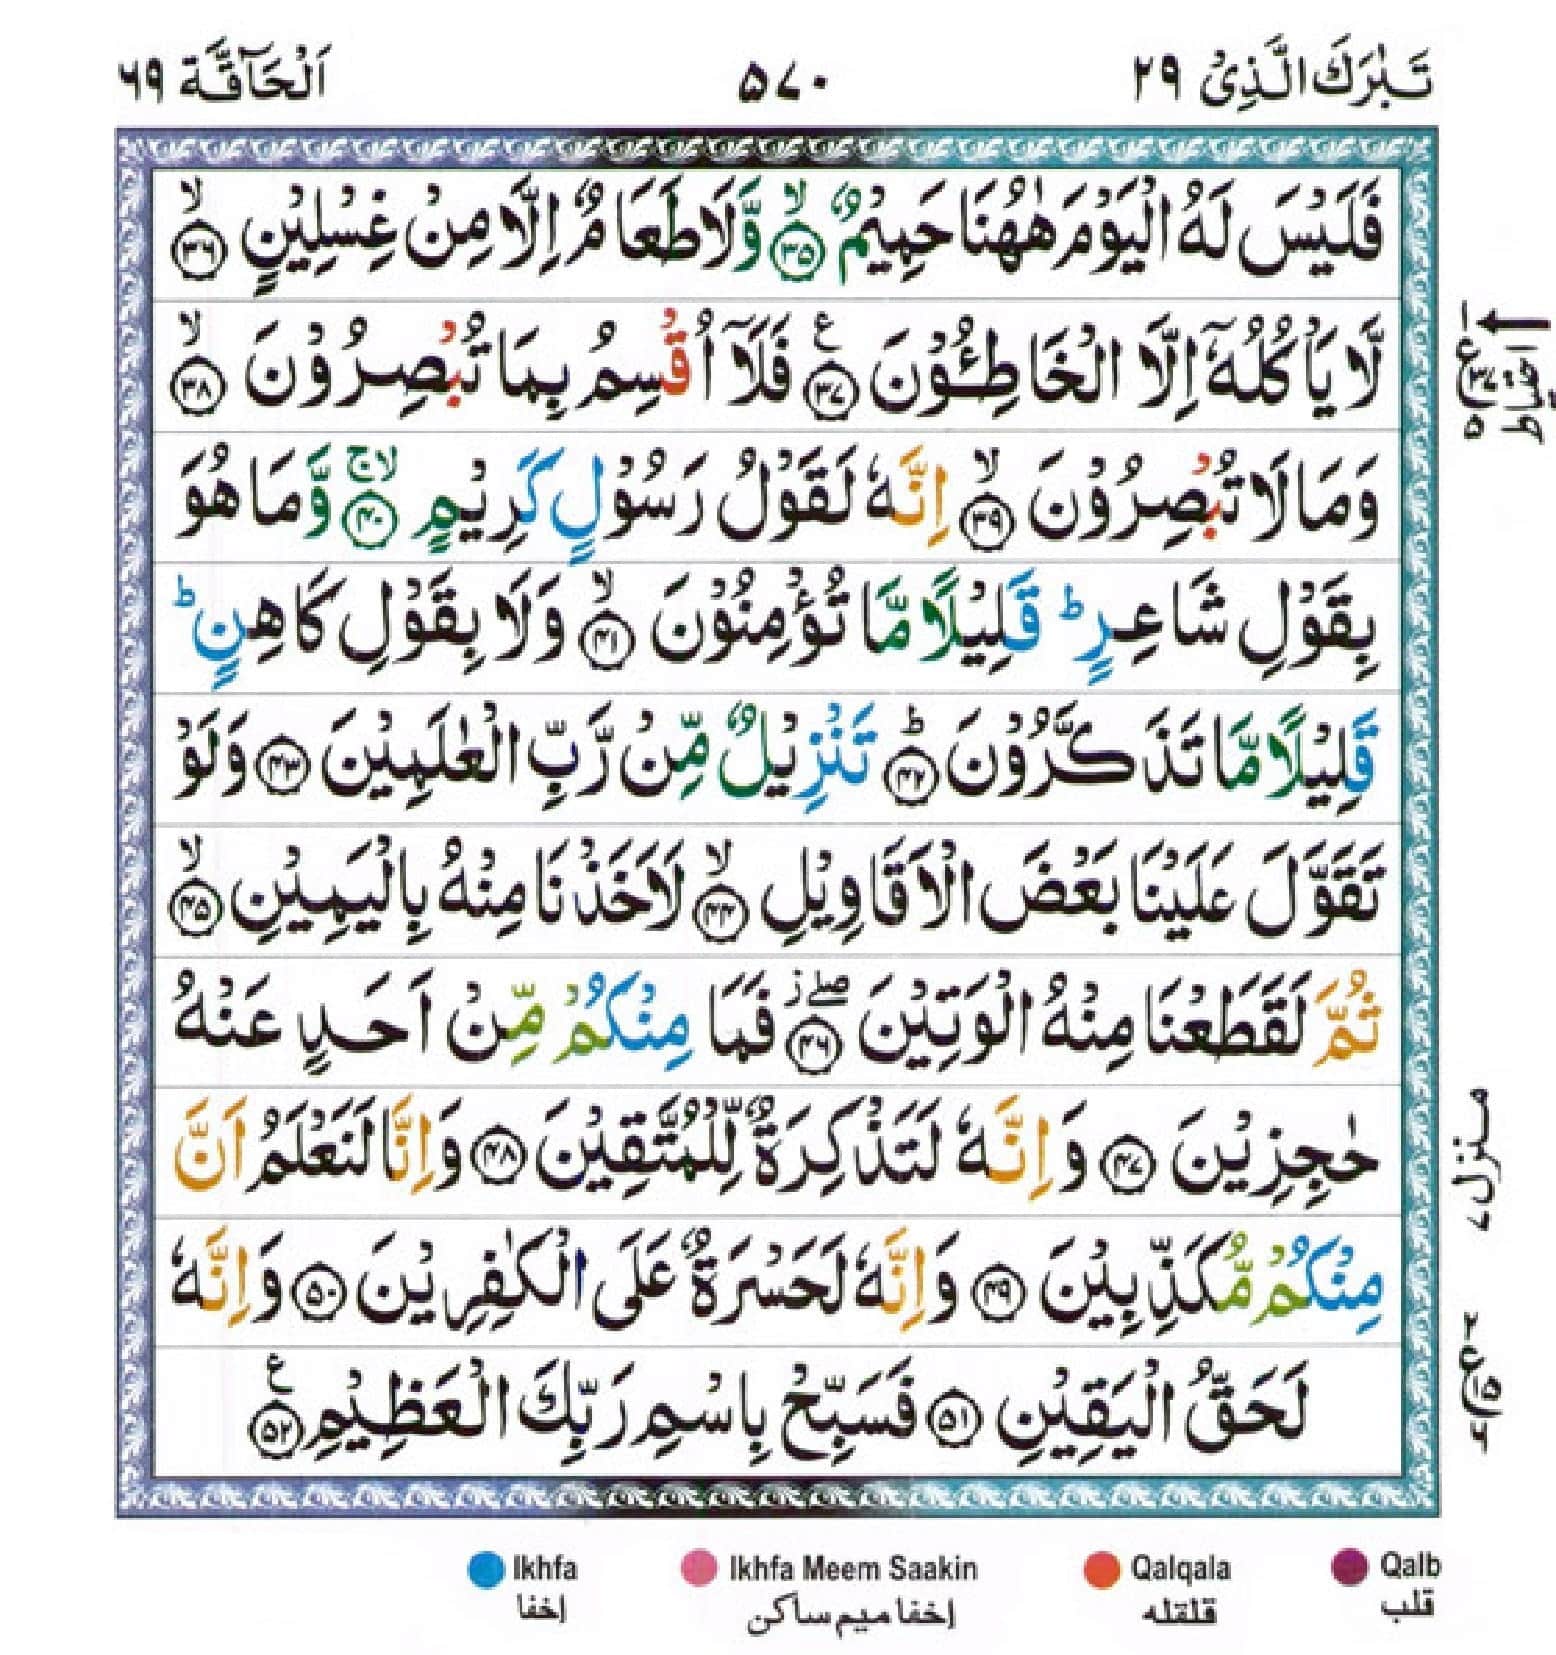 تَبٰرَكَ الَّذِیْ ۲۹
۵۷۰
اَلْحَآقَّة ۶۹
فَلَیْسَ لَهُ الْیَوْمَ هٰهُنَا حَمِیْمٌ ۙ﴿۳۵﴾ وَّلَا طَعَامٌ اِلَّا مِنْ غِسْلِیْنٍ ۙ﴿۳۶﴾
لَّا یَاْكُلُهٗۤ اِلَّا الْخَاطِـُٔوْنَ ﴿۳۷﴾ع فَلَاۤ اُقْسِمُ بِمَا تُبْصِرُوْنَ ۙ﴿۳۸﴾
وَمَا لَا تُبْصِرُوْنَ ۙ﴿۳۹﴾ اِنَّهٗ لَقَوْلُ رَسُوْلٍ كَرِیْمٍ ۙۚ﴿۴۰﴾ وَّمَا هُوَ
بِقَوْلِ شَاعِرٍ ؕ قَلِیْلًا مَّا تُؤْمِنُوْنَ ۙ﴿۴۱﴾ وَلَا بِقَوْلِ كَاهِنٍ ؕ
قَلِیْلًا مَّا تَذَكَّرُوْنَ ؕ﴿۴۲﴾ تَنْزِیْلٌ مِّنْ رَّبِّ الْعٰلَمِیْنَ ﴿۴۳﴾ وَلَوْ
تَقَوَّلَ عَلَیْنَا بَعْضَ الْاَقَاوِیْلِ ۙ﴿۴۴﴾ لَاَخَذْنَا مِنْهُ بِالْیَمِیْنِ ۙ﴿۴۵﴾
ثُمَّ لَقَطَعْنَا مِنْهُ الْوَتِیْنَ ۖز﴿۴۶﴾ فَمَا مِنْكُمْ مِّنْ اَحَدٍ عَنْهُ
حٰجِزِیْنَ ﴿۴۷﴾ وَاِنَّهٗ لَتَذْكِرَةٌ لِّلْمُتَّقِیْنَ ﴿۴۸﴾ وَاِنَّا لَنَعْلَمُ اَنَّ
مِنْكُمْ مُّكَذِّبِیْنَ ﴿۴۹﴾ وَاِنَّهٗ لَحَسْرَةٌ عَلَی الْكٰفِرِیْنَ ﴿۵۰﴾ وَاِنَّهٗ
لَحَقُّ الْیَقِیْنِ ﴿۵۱﴾ فَسَبِّحْ بِاسْمِ رَبِّكَ الْعَظِیْمِ ﴿۵۲﴾ع
منزل ۷
Ikhfa
إخفا
Ikhfa Meem Saakin
إخفا ميم ساكن
Qalqala
قلقله
Qalb
قلب